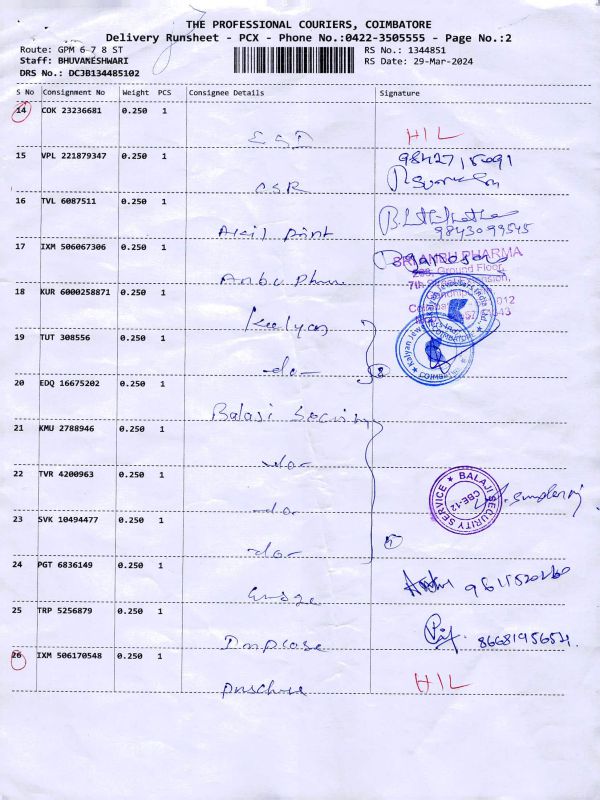 THE PROFESSIONAL COURIERS, COIMBATORE
Delivery Runsheet - PCX - Phone No.:0422-3505555 - Page No.:2
Route: GPM 6 7 8 ST RS No.: 1344851
Staff: BHUVANESHWARI RS Date: 29-Mar-2024
DRS No.: DCJB134485102
S No Consignment No Weight PCS Consignee Details Signature
14 COK 23236681 0.250 1
HIL
15 VPL 221879347 0.250 1
CSR
16 TVL 6087511 0.250 1
Akil Print 9843099545
17 IXM 506067306 0.250 1
SRI ANBU PHARMA
Ground Floor,
Anbu Pharma
18 KUR 6000258871 0.250 1
Kalyan
Kalyan Jewellers India Ltd
COIMBATORE
19 TUT 308556 0.250 1
-do-
20 EDQ 16675202 0.250 1
Balaji Security
21 KMU 2788946 0.250 1
-do-
22 TVR 4200963 0.250 1
BALAJI SECURITY SERVICE
CBE-12
-do-
23 SVK 10494477 0.250 1
-do-
24 PGT 6836149 0.250 1
25 TRP 5256879 0.250 1
26 IXM 506170548 0.250 1
HIL